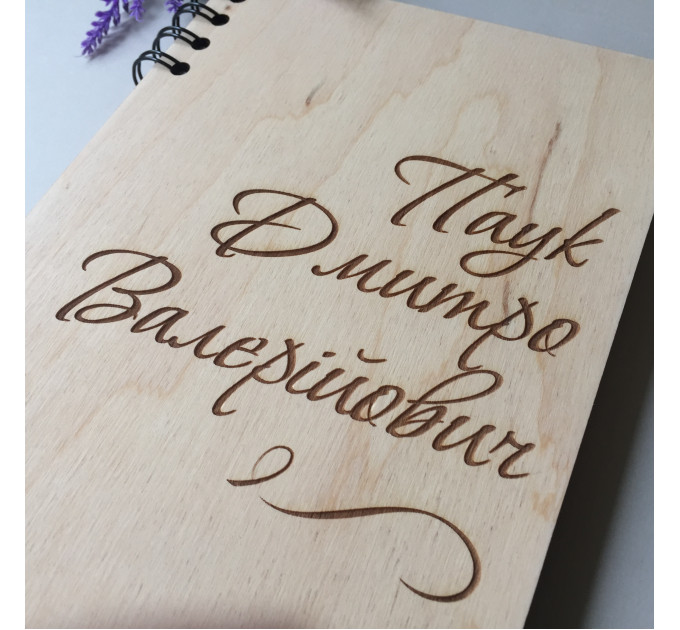 Паук
Дмитро
Валерійович